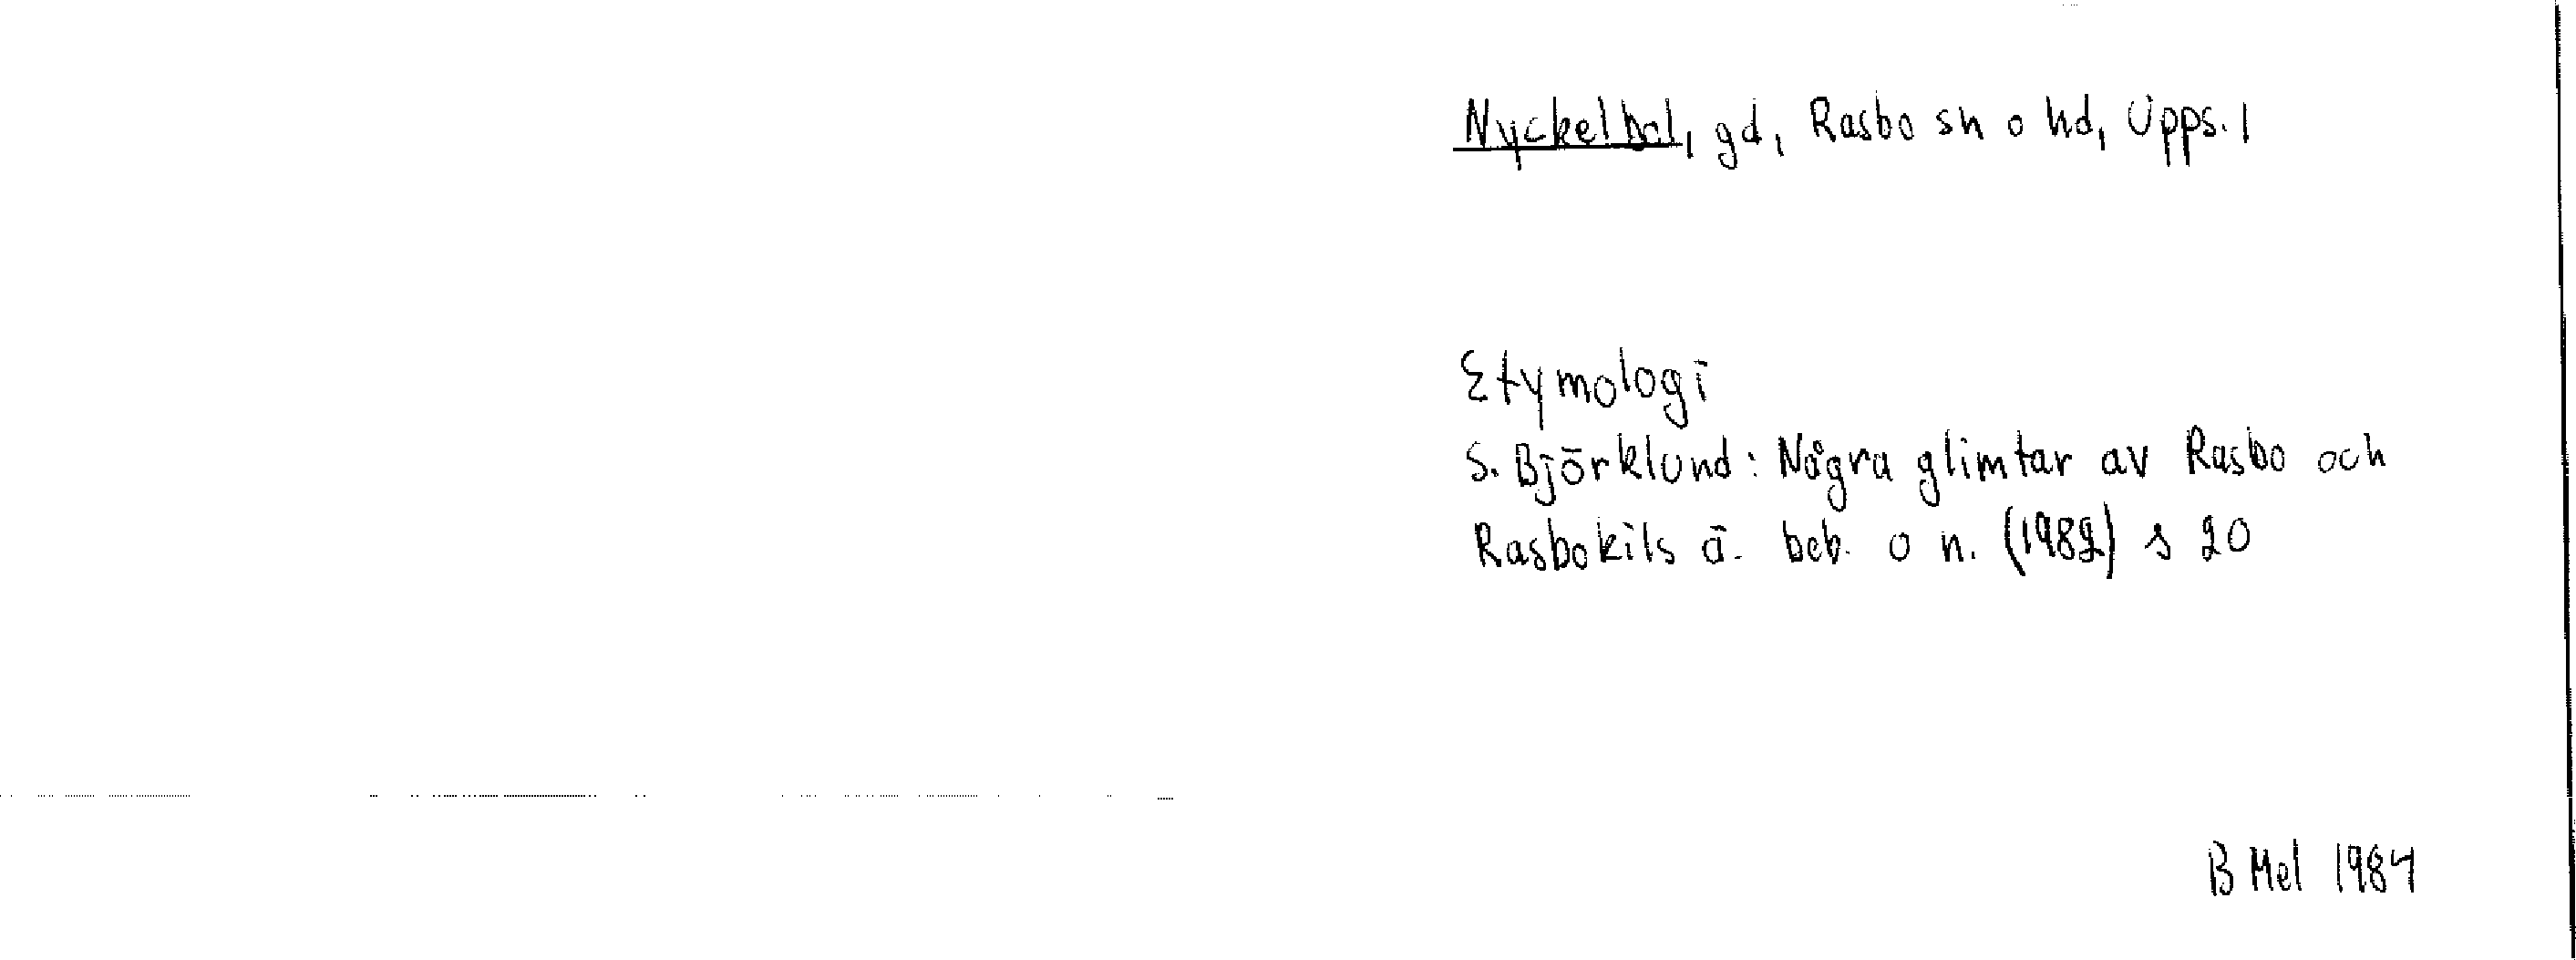 Nyckelbol, gd, Rasbo sn o hd, Upps. l
Etymologi
S. Björklund: Några glimtar av Rasbo och
Rasbokils ä. beb. o n. (1982) s 20
B Mel 1984